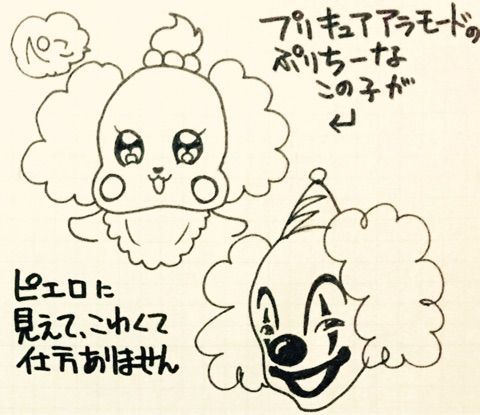 ぺこ
プリキュアアラモードの
ぷりちーな
この子が
ピエロに
見えて、こわくて
仕方ありません